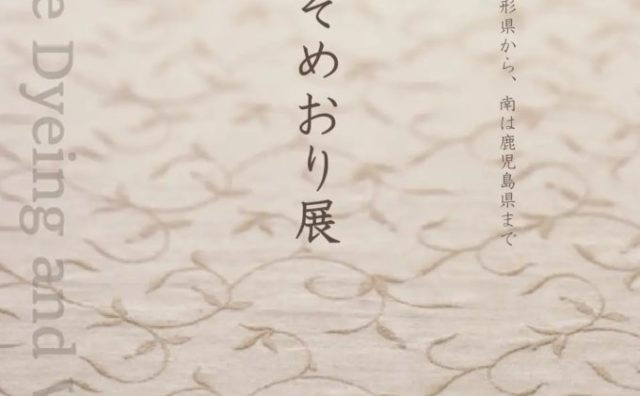 形県から、南は鹿児島県まで
そめおり展
e Dyeing and